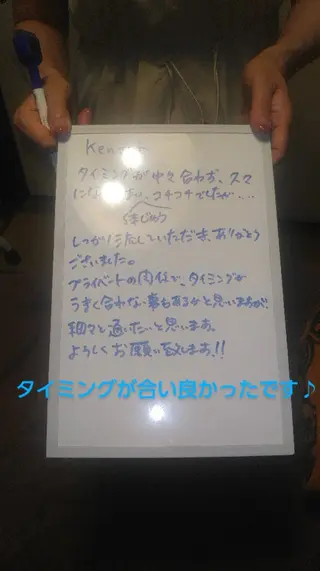 タイミングが中々合わず、久々
コチコチでしたが、...
体じゅう
しっかり対応していただき、ありがとう
ございました。
プライベートの関係で、タイミングが
うまく合わない事もあるかと思いますが
細々と通いたいと思います。
よろしくお願い致します!!
タイミングが合い良かったです♪